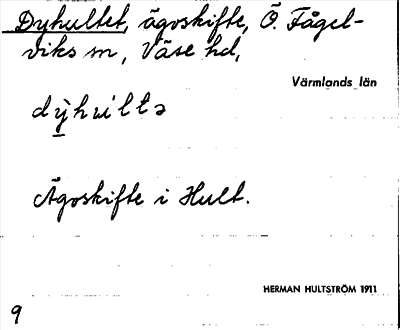 Dyhultet, ägoskifte, Ö. Fågel-
viks sn, Väse hd,
Värmlands län
dỳhuìltə
Ägoskifte i Hult.
HERMAN HULTSTRÖM 1911
9